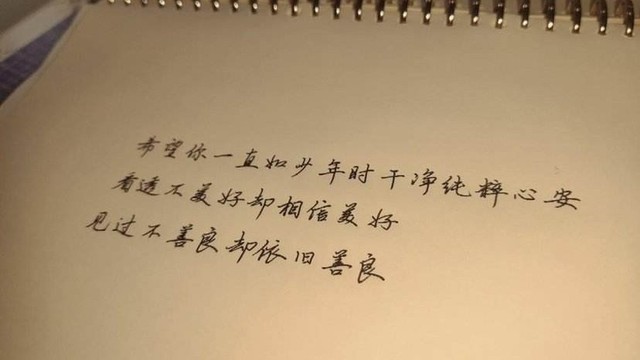 希望你一直如少年时干净纯粹心安
看透不美好却相信美好
见过不善良却依旧善良